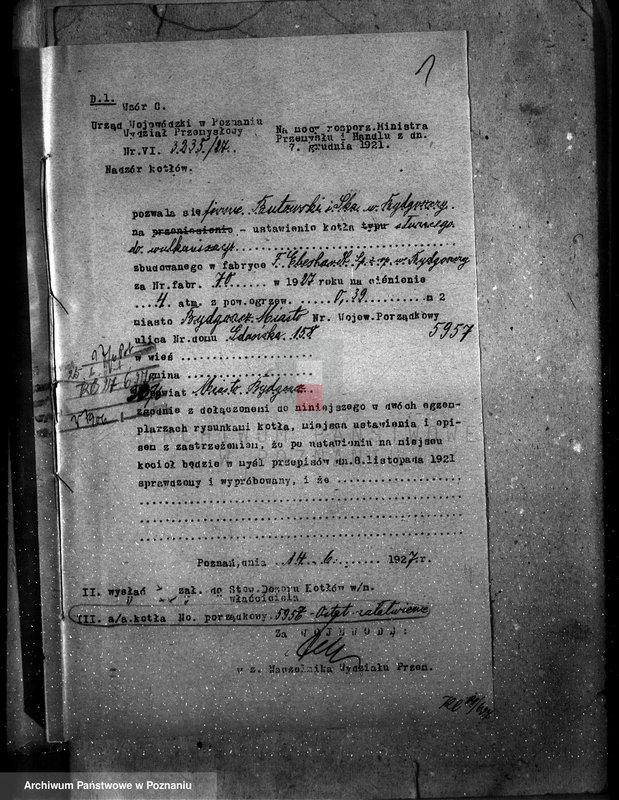 1
D.1.
Wzór C.
Urząd Wojewódzki w Poznaniu
Wydział Przemysłowy
Nr.VI. 3235./27.
Na mocy rozporz.Ministra
Przemysłu i Handlu z dn.
7. grudnia 1921.
Nadzór kotłów.
pozwala się firmie i Ska w. Bydgoszczy
na przeniesienie - ustawienie kotła typu
do wulkanizacji
zbudowanego w fabryce F. Eberhardt Sp. z o.p. w. Bydgoszczy
za Nr.fabr. 70 w 1927 roku na ciśnienie
4. atm. z pow.ogrzew. 0,39 m 2
miasto Bydgoszcz Miasto Nr. Wojew.Porządkowy
ulica Nr.domu Gdańska 158 5957
w wieś
gmina
powiat Miasto Bydgoszcz
zgodnie z dołączonemi do niniejszego w dwóch egzem-
plarzach rysunkami kotła, miejsca ustawienia i opi-
sem z zastrzeżeniem, że po ustawieniu na miejscu
kocioł będzie w myśl przepisów dn.8.listopada 1921
sprawdzony i wypróbowany, i że
Poznań,dnia 14 6. 1927.r.
II. wysłań zał. do Stow.Dozoru Kotłów w/n.
właściciela
III. a/a.kotła No. porządkowy. 5957
Za WOJEWODĘ:
w z. Naczelnika Wydziału Przem.
Archiwum Państwowe w Poznaniu